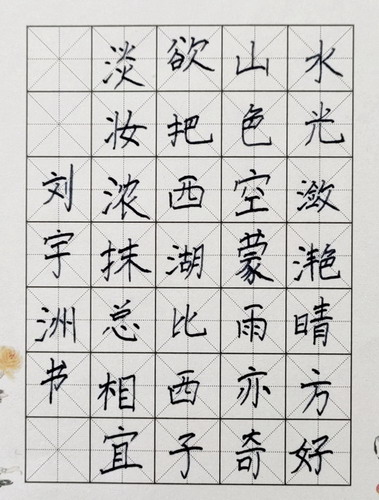 水光潋滟晴方好
山色空蒙雨亦奇
欲把西湖比西子
淡妆浓抹总相宜
刘宇洲书